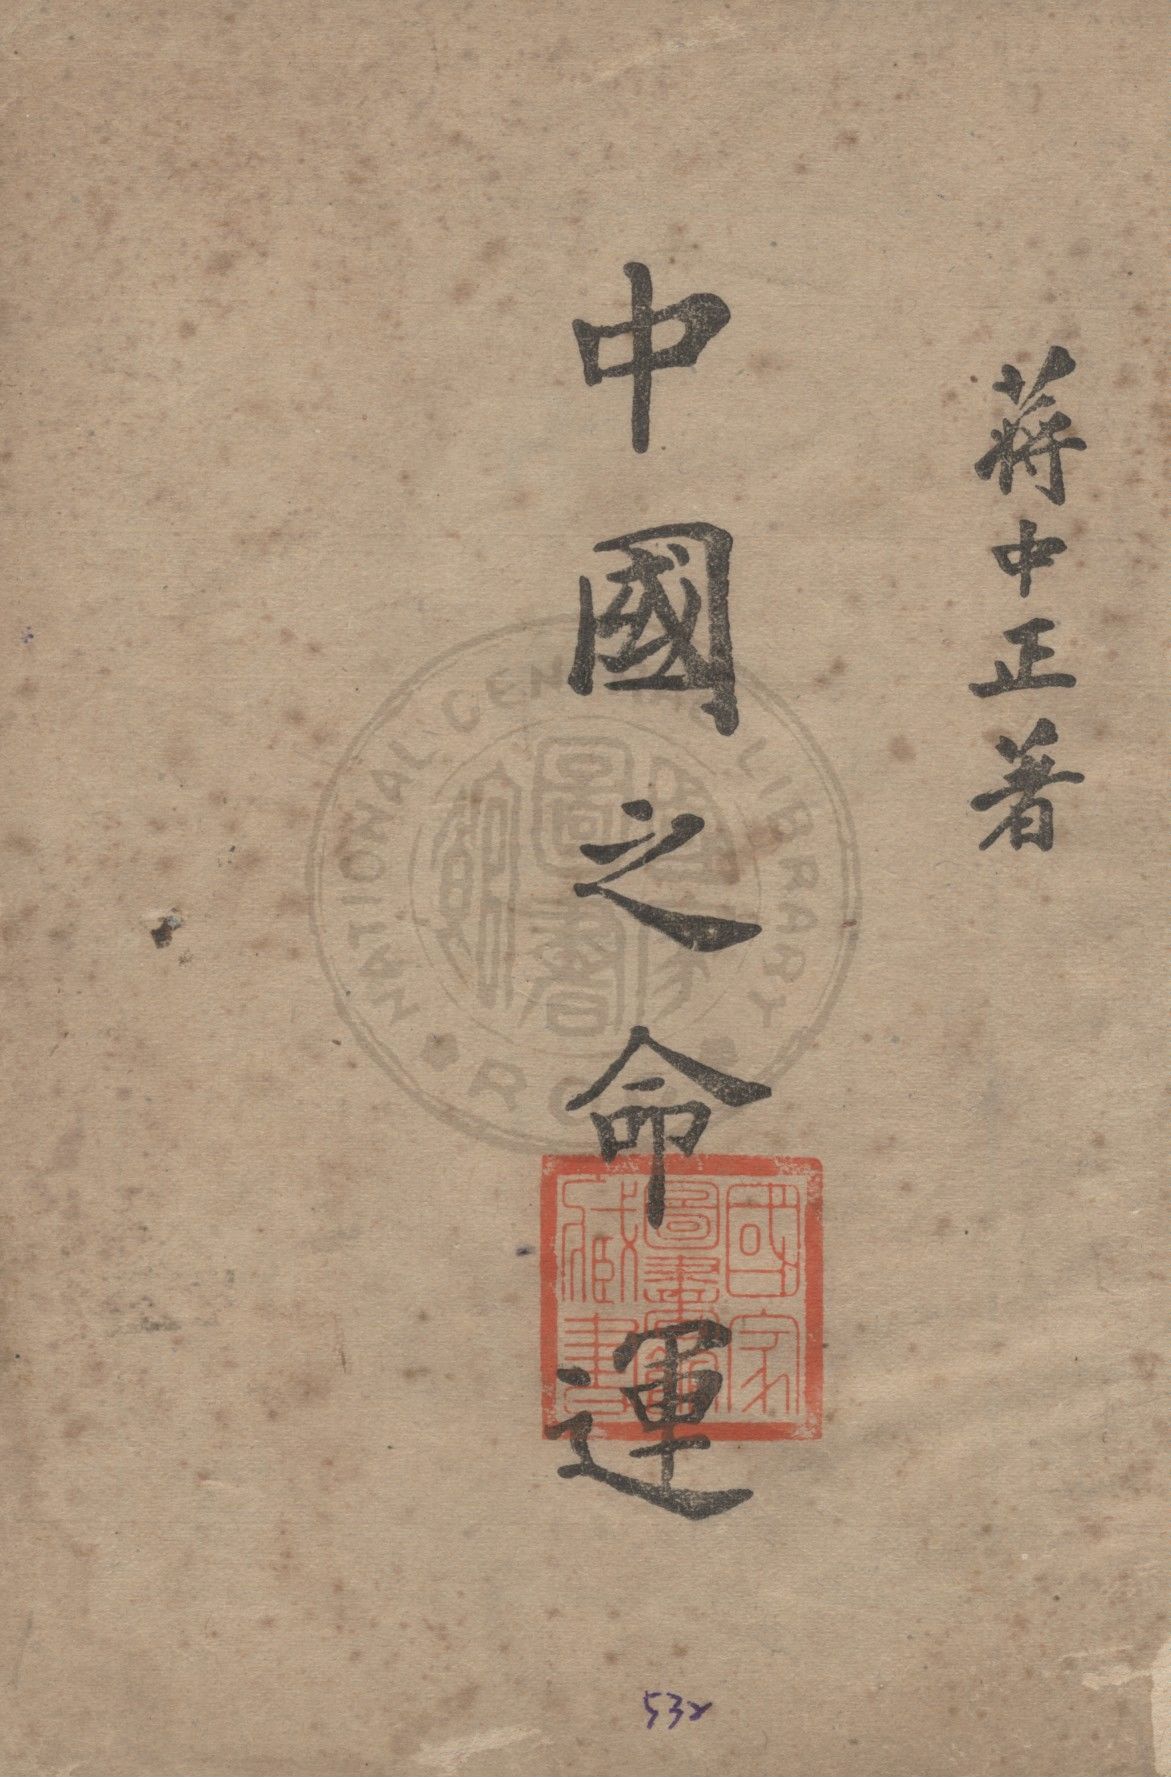 蔣中正著
中國之命運
國家
圖書館
藏書
NATIONAL CENTRAL LIBRARY
R.O.C.
國家
圖書
館
532